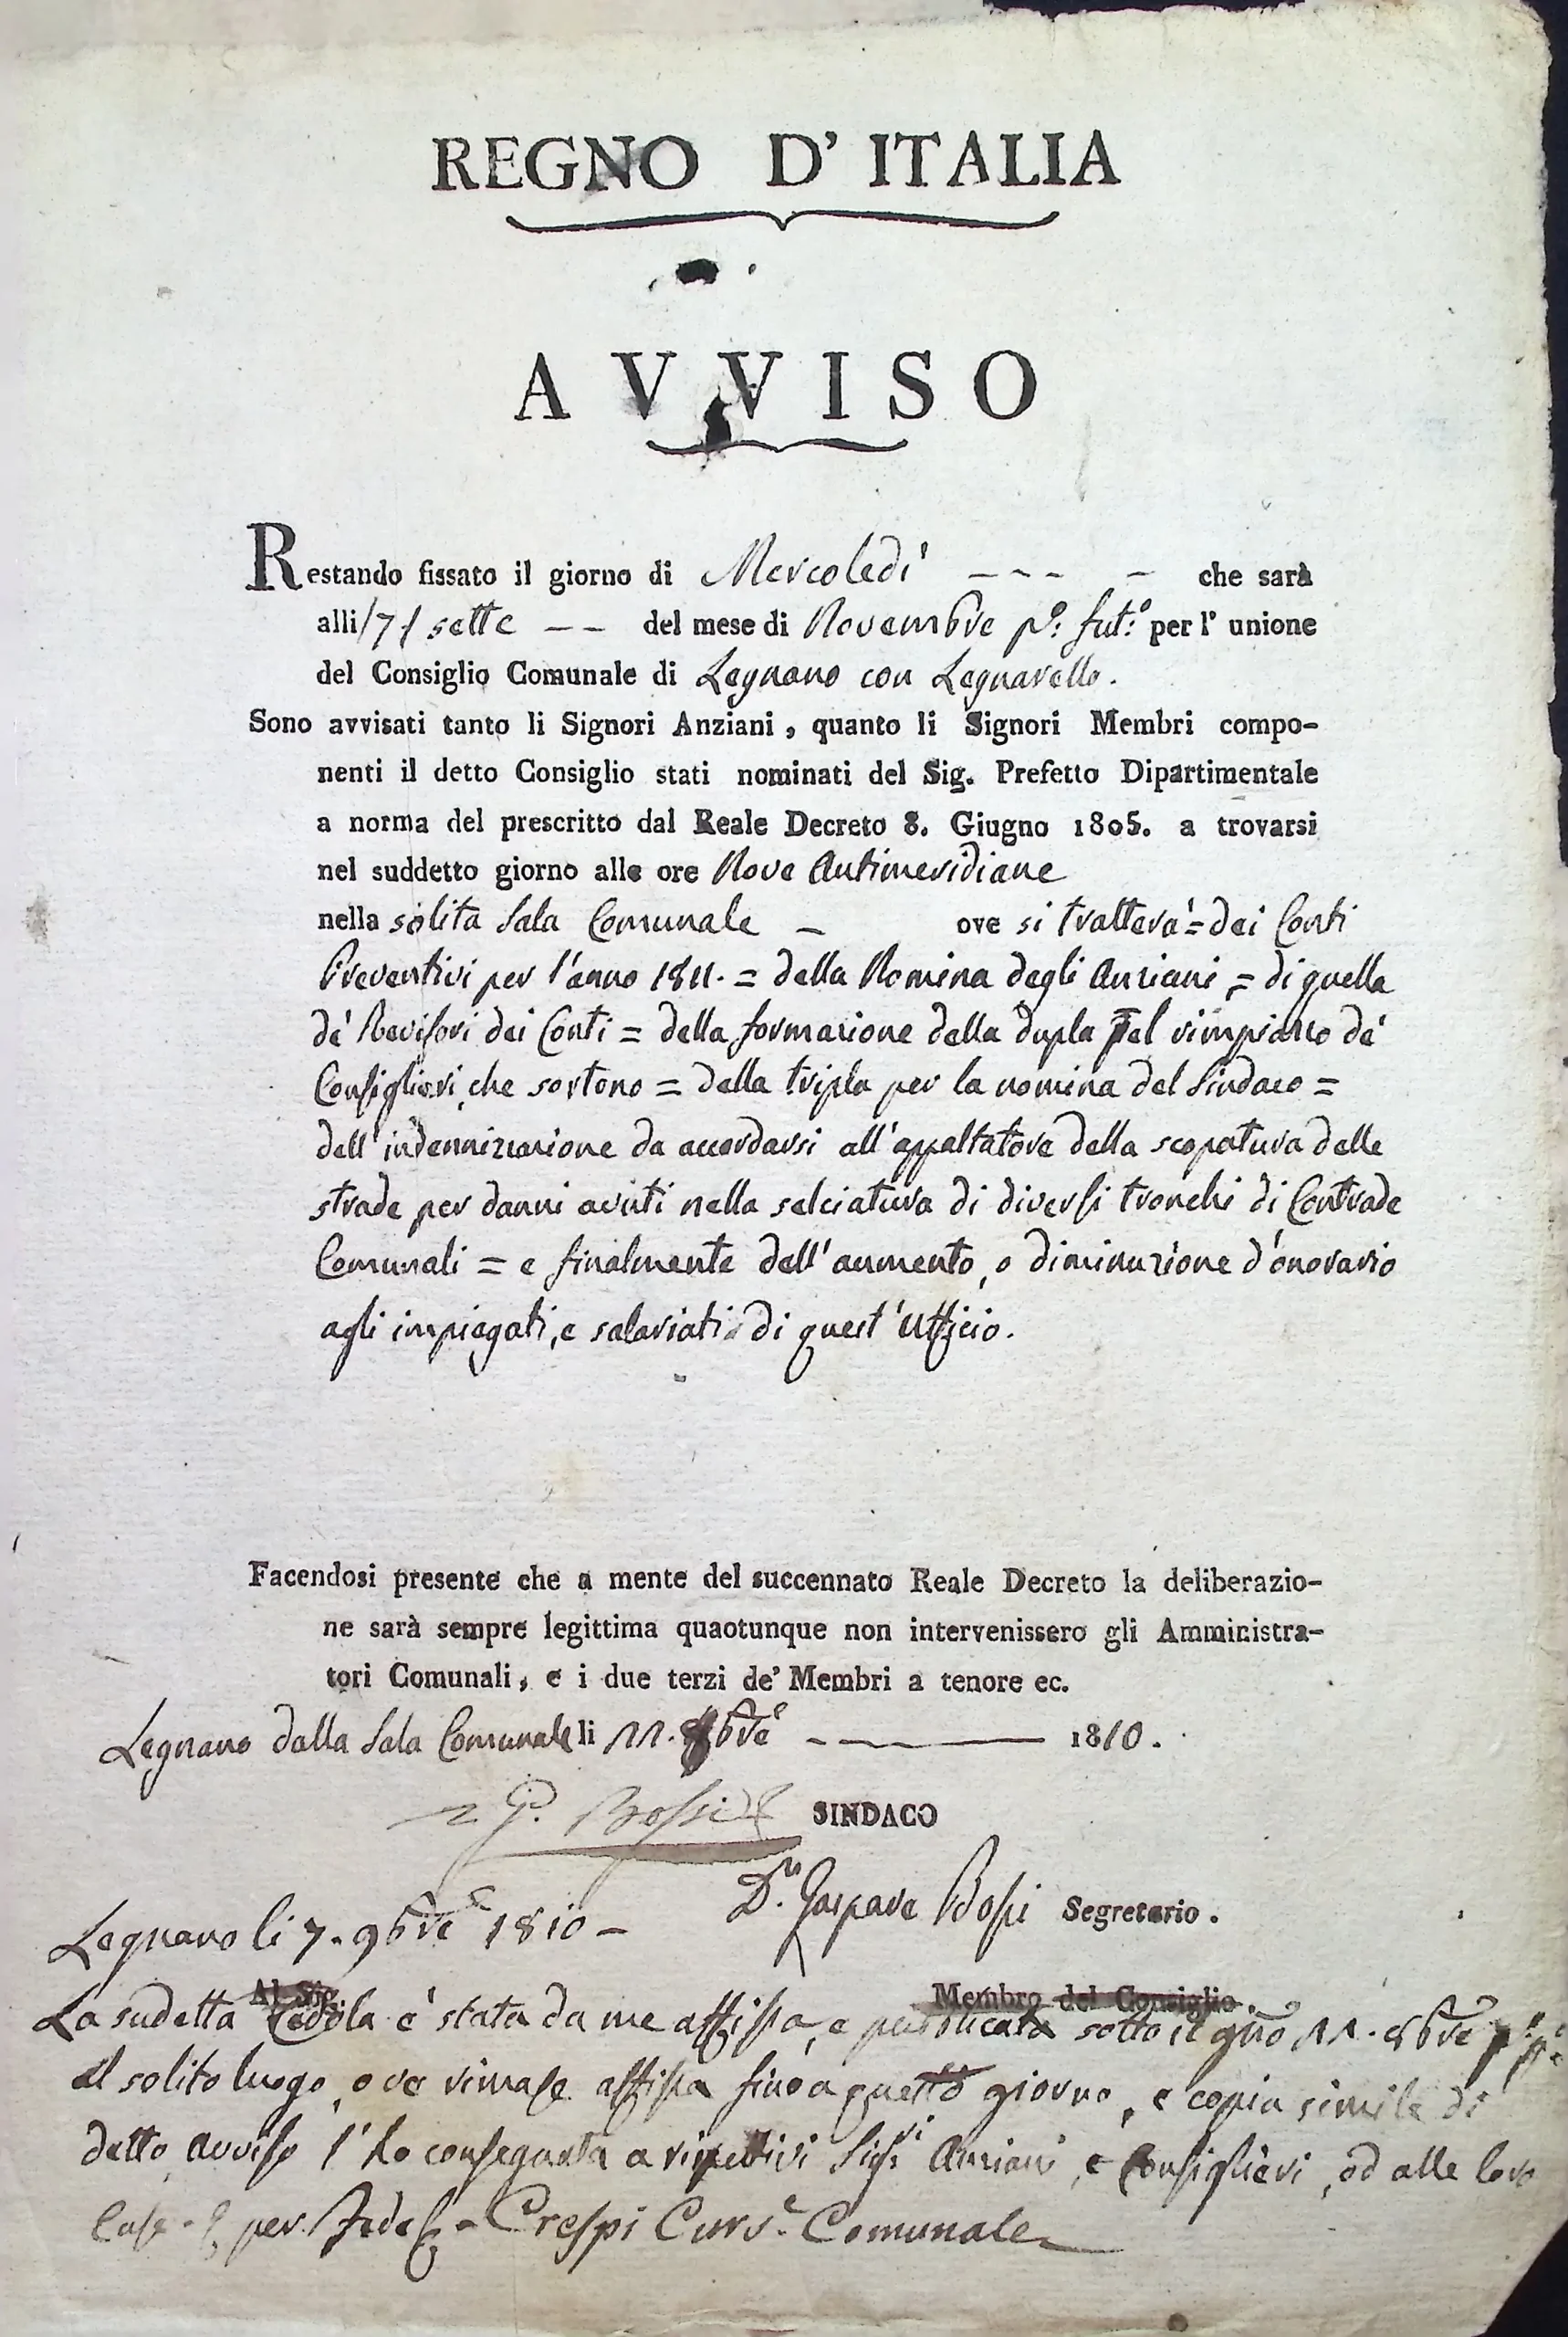 REGNO D' ITALIA
AVVISO
Restando fissato il giorno di Mercoledi' che sarà
alli /7/ sette — — del mese di Novembre p.º fut.º per l' unione
del Consiglio Comunale di Legnano con Legnarello.
Sono avvisati tanto li Signori Anziani , quanto li Signori Membri compo-
nenti il detto Consiglio stati nominati del Sig. Prefetto Dipartimentale
a norma del prescritto dal Reale Decreto 8. Giugno 1805. a trovarsi
nel suddetto giorno alle ore Nove Antimeridiane
nella solita Sala Comunale — ove si trattera' = dei Conti
Preventivi per l'anno 1811. = della Nomina degli Anziani, = di quella
de' Revisori dei Conti = della formazione della dupla pel rimpiazzo de'
Consiglieri, che sortono = della tripla per la nomina del Sindaco =
dell'indennizzazione da accordarsi all'appaltatore della scopatura delle
strade per danni avuti nella selciatura di diversi tronchi di Contrade
Comunali = e finalmente dell'aumento, o diminuzione d'onorario
agli impiegati, e salariati di quest'Ufficio.
Facendosi presente che a mente del succennato Reale Decreto la deliberazio-
ne sarà sempre legittima quaotunque non intervenissero gli Amministra-
tori Comunali , e i due terzi de' Membri a tenore ec.
Legnano dalla Sala Comunale li 11. 8bre 1810.
G. Bossi SINDACO
D.n Gaspare Bossi Segretario .
Legnano li 7. 9bre 1810 —
Al Sig. Membro del Consiglio .
La sudetta Cedola è stata da me affissa, e pubblicata sotto il gno 11. 8bre
al solito luogo, ove rimase affissa fino a questo giorno, e copia simile di
detto avviso l'ho consegnata a rispettivi Sig.ri Anziani, e Consiglieri, od alle loro
Case - per Fede - Crespi Curs.e Comunale